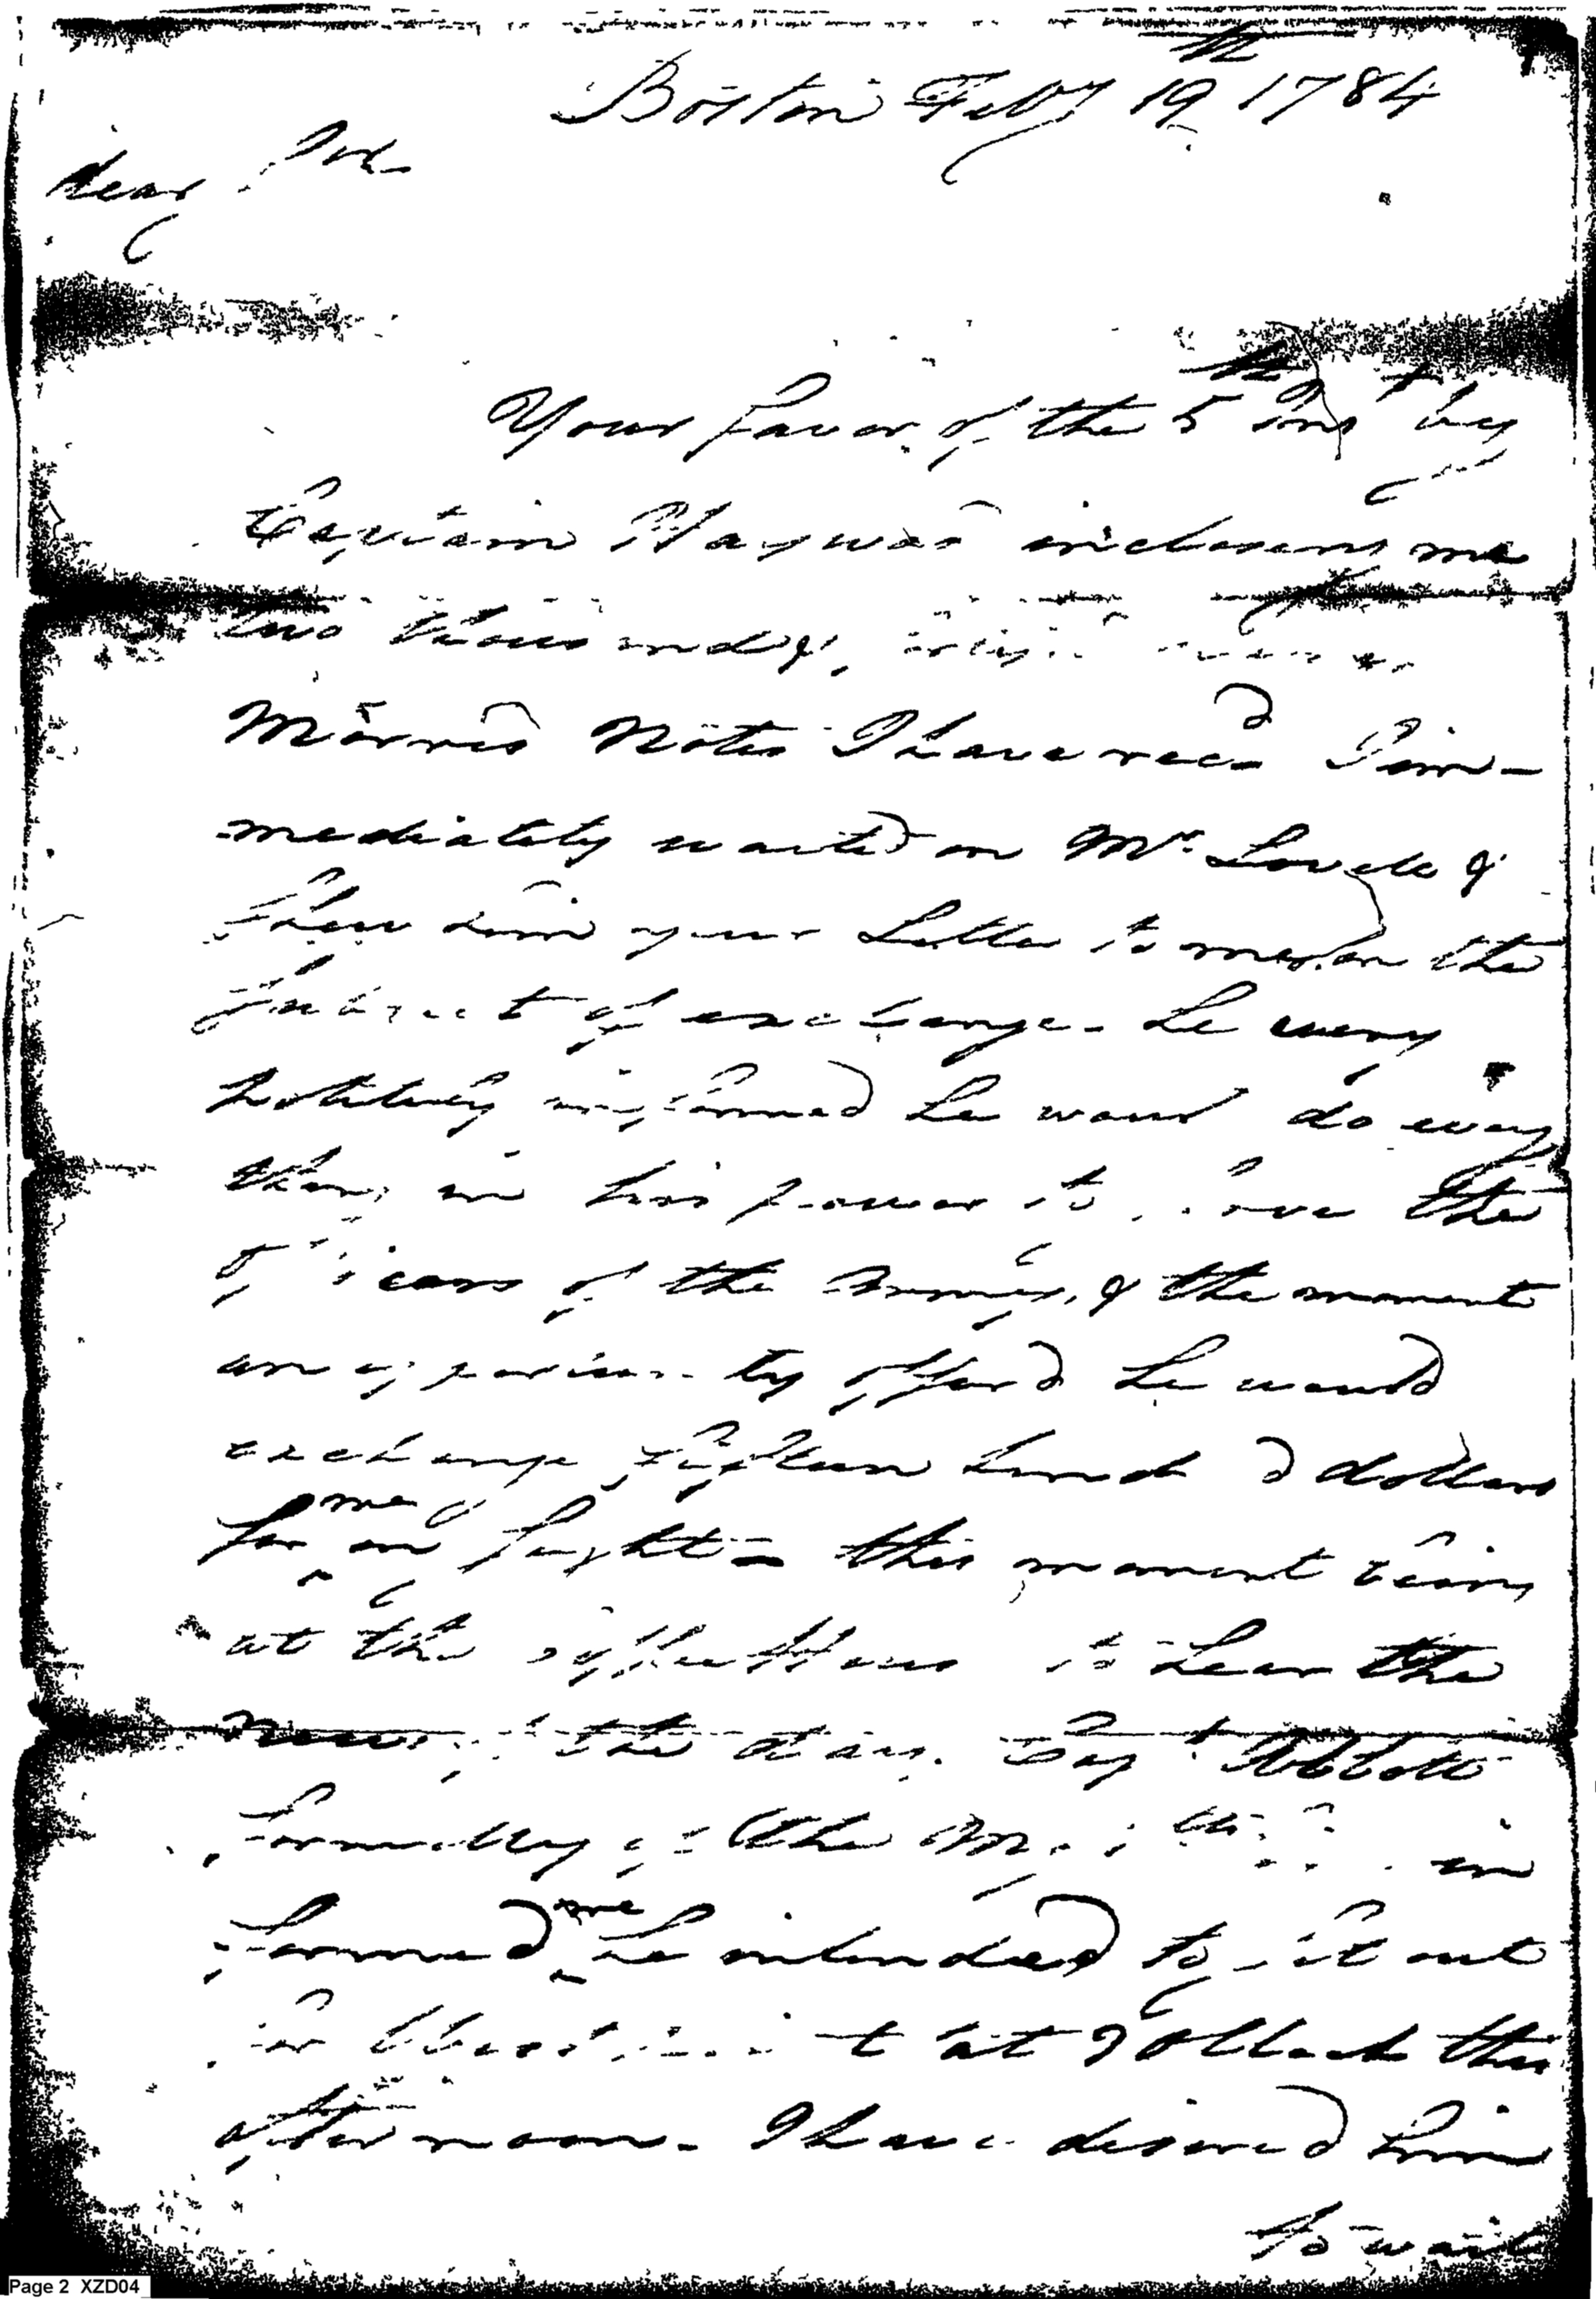 Boston Feby 19th 1784
dear Sir
Your favor of the 5th Inst by
Captain Haywad inclosing me
two thousand &
Morris Notes I have recd I im-
mediately waited on Mr. Lovell &
shew him your Letter to me on the
subject of exchange - he very
politely informed he would do every
thing in his power to the
officers of the Army, & the moment
an opportunity offerd he would
exchange fifteen hundd dollars
for me on sight - this moment being
at the to hear the
news of the day. Capt Abbott
formerly of the in
formed me he intended to set out
for at 2 oClock this
afternoon - I have desired him
to wait
Page 2 XZD04